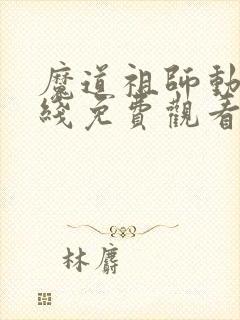 魔道祖師動
綫免費觀看
林麝